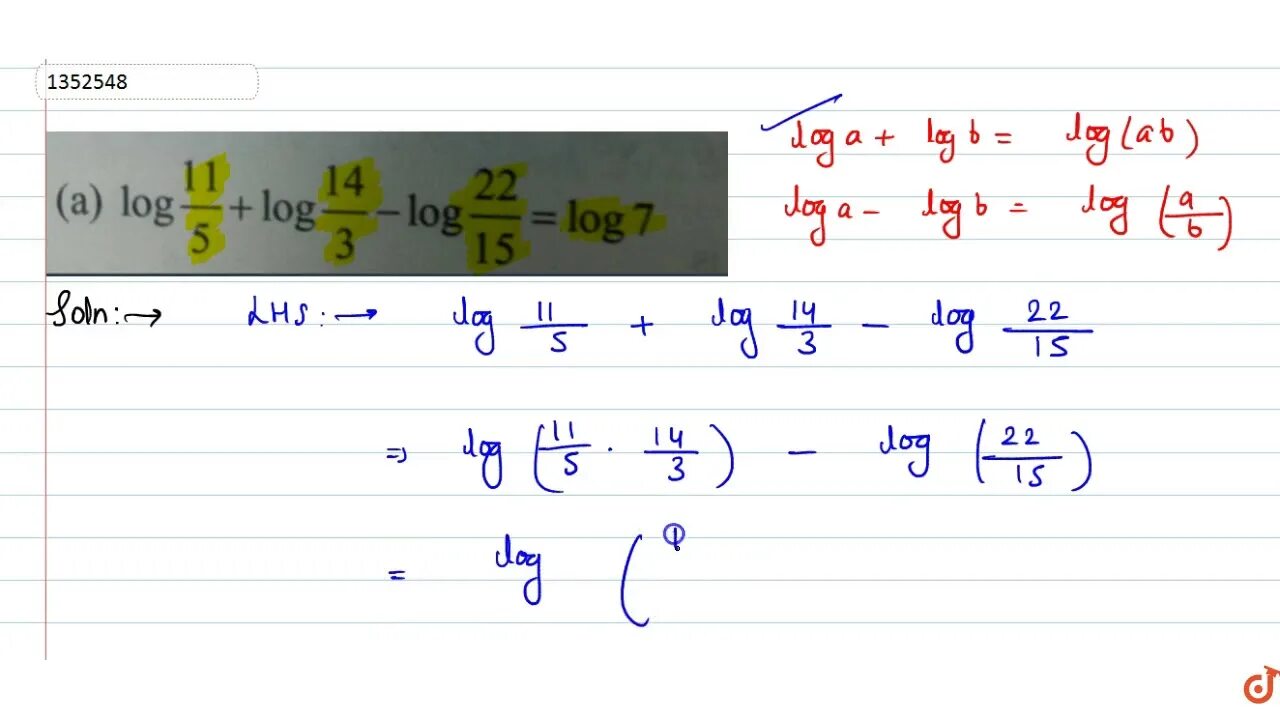 1352548
(a) log 11/5 + log 14/3 − log 22/15 = log 7
log a + log b = log (ab)
log a − log b = log (a/b)
Soln: → LHS: → log 11/5 + log 14/3 − log 22/15
⇒ log (11/5 · 14/3) − log (22/15)
= log (